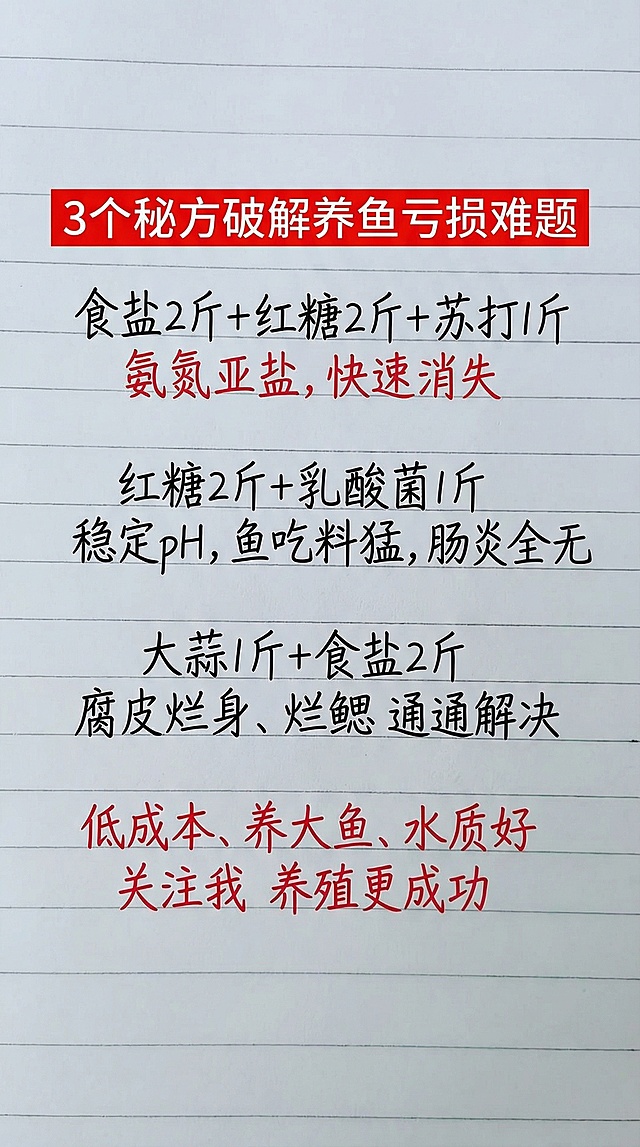 3个秘方破解养鱼亏损难题
食盐2斤+红糖2斤+苏打1斤
氨氮亚盐,快速消失
红糖2斤+乳酸菌1斤
稳定pH,鱼吃料猛,肠炎全无
大蒜1斤+食盐2斤
腐皮烂身、烂鳃 通通解决
低成本、养大鱼、水质好
关注我 养殖更成功